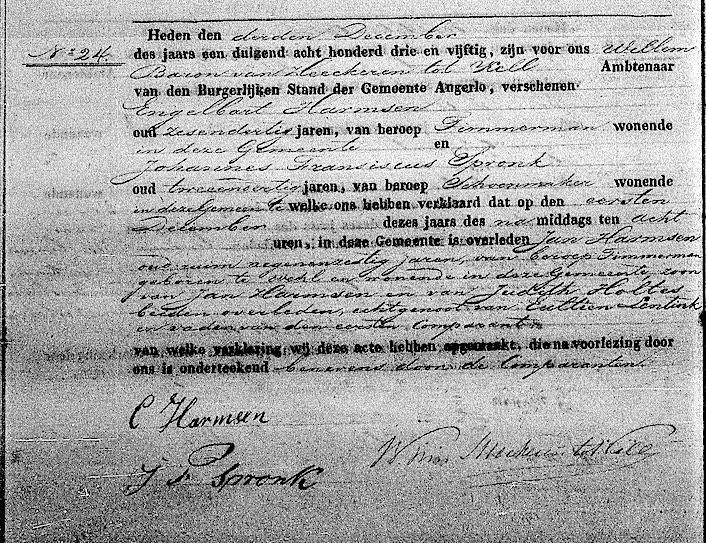 Heden den derden December
No 24. des jaars een duizend acht honderd drie en vijftig, zijn voor ons Willem
Baron van Heeckeren tot Kell Ambtenaar
van den Burgerlijken Stand der Gemeente Angerlo, verschenen
Engelbart Harmsen
oud zesendertig jaren, van beroep Timmerman wonende
in deze Gemeente en
Johannes Franciscus Spronk
oud tweeenveertig jaren, van beroep Schoenmaker wonende
in deze Gemeente welke ons hebben verklaard dat op den eersten
December dezes jaars des na middags ten acht
uren, in deze Gemeente is overleden Jan Harmsen
oud ruim negenenzestig jaren, van beroep Timmerman
geboren te Wehl en wonende in deze Gemeente, zoon
van Jan Harmsen en van Judith Holtes
beiden overleden, echtgenoot van Lentink
en vader van den eersten Comparant
van welke verklaring wij deze acte hebben opgemaakt, die na voorlezing door
ons is onderteekend benevens door de Comparanten.
E Harmsen
W. van Heeckeren tot Kell
J F Spronk